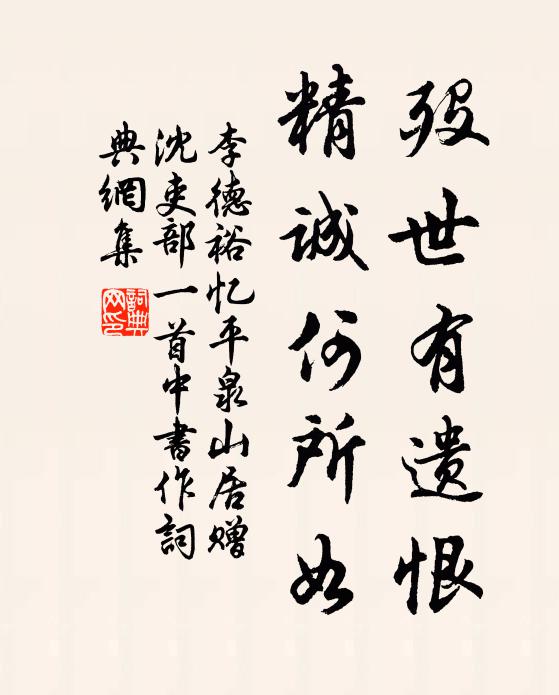 殁世有遗恨
精诚何所如
李德裕忆平泉山居赠
沈吏部一首中書作詞
典網集
詞典
网印